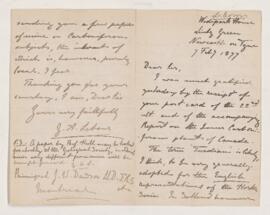 Woodpark House
Lindy Green
Newcastle on Tyne
7 Feby 1897
Dear Sir,
I was much gratified
yesterday by the receipt of
your post card of the 22nd
ult and of the accompanying
Report on the Lower Carbon-
iferous plants of Canada
The term
I think, to be very generally
adopted for the English
representatives of the Horton
Series. In Scotland however
sending you a few papers
of mine on Carboniferous
subjects, the interest of
which is, however, purely
local, I fear.
Thanking you for your
courtesy, I am, Dear Sir
Yours very faithfully
G. A. Lebour
P.S. A paper by Prof. Hull may be looked
for shortly by the Geological Society, in which
some very different
brought forward G.A.L.
Principal J. W. Dawson LL.D. F.R.S.
Montreal